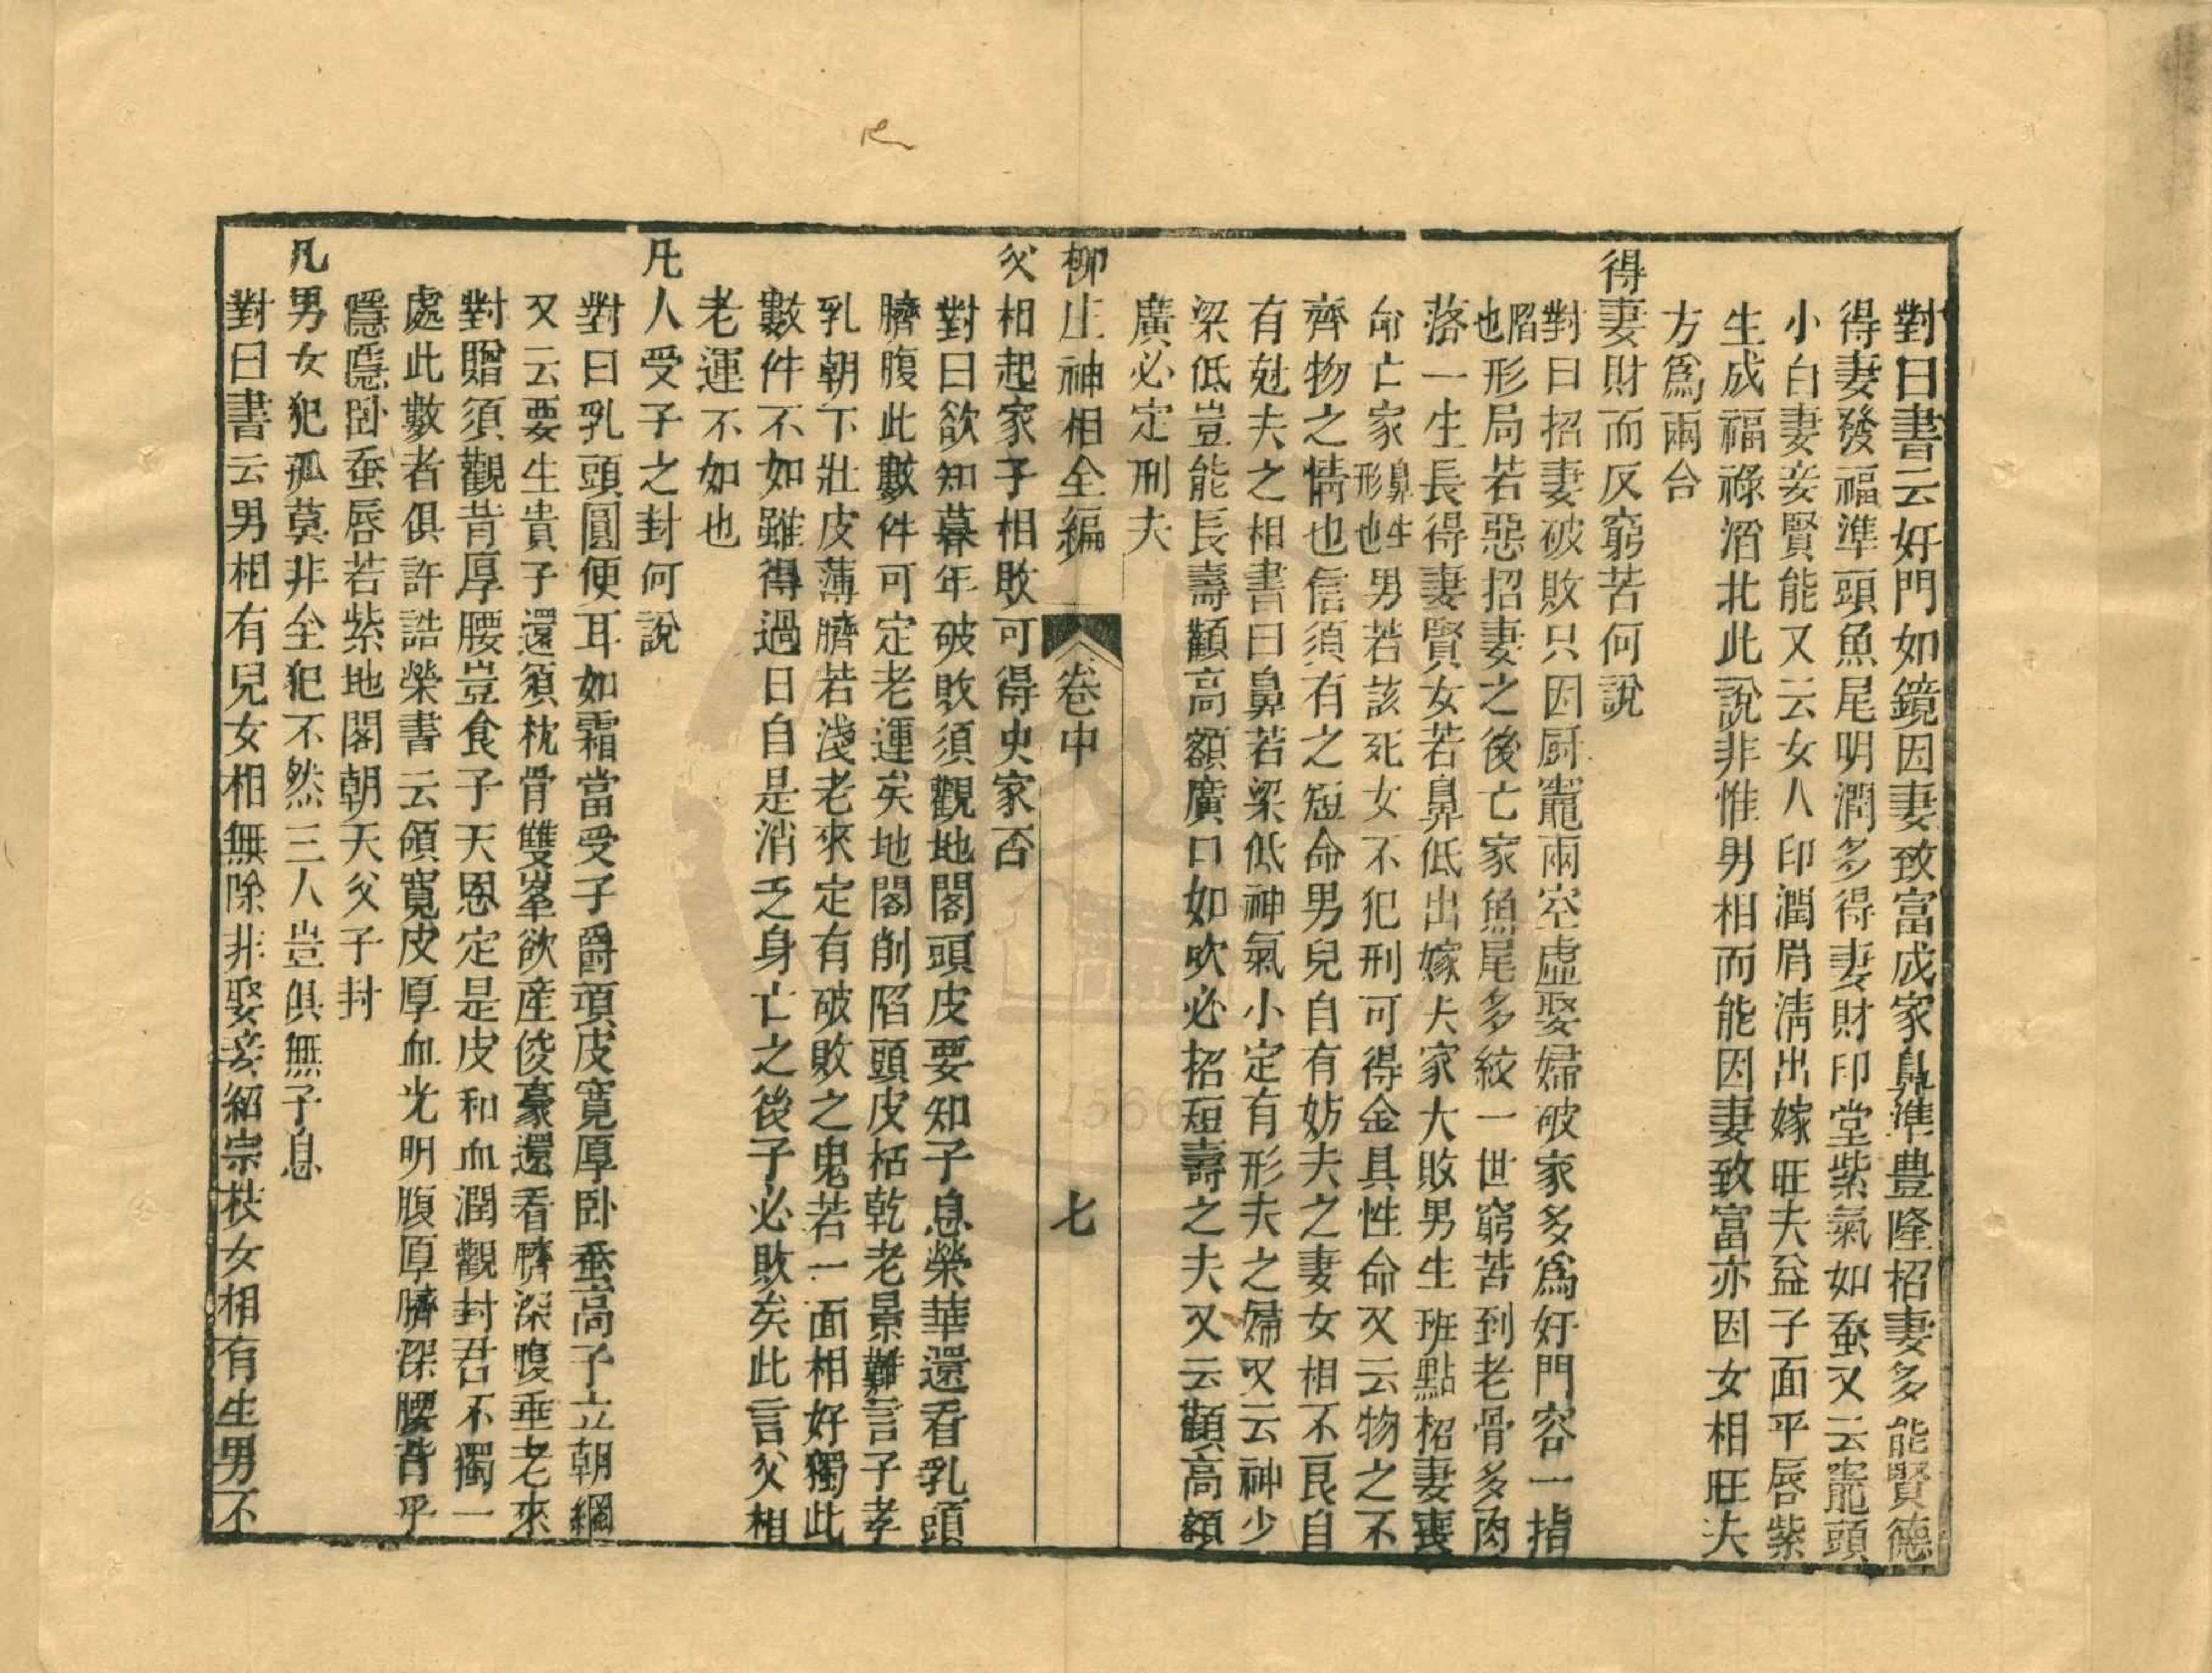 對曰書云奸門如鏡因妻致富成家鼻準豊隆招妻多能賢德
得妻發福準頭魚尾明潤多得妻財印堂紫氣如蚕又云竈頭
小白妻妾賢能又云女人印潤脣清出嫁旺夫益子面平唇紫
生成福祿滔北此說非惟男相而能因妻致富亦因女相旺夫
方為兩台
得妻財而反窮苦何說
對曰招妻破敗只因厨竈兩空虛娶婦破家多為奸門容一指
陷也形局若惡招妻之後亡家魚尾多紋一世窮苦到老骨多肉
落一生長得妻賢女若鼻低出嫁夫家大敗男生班點招妻喪
命亡家鼻生形也男若該死女不犯刑可得金具性命又云物之不
齊物之情也信須有之短命男兒自有妨夫之妻女相不良自
有尅夫之相書曰鼻若梁低神氣小定有形夫之婦又云神少
梁低豈能長壽顴高額廣口如吹必招短壽之夫又云顴高額
廣必定刑夫
柳庄神相全編 卷中 七
父相起家子相敗可得史家否
對曰欲知暮年破敗須觀地閣頭皮要知子息榮華還看乳頭
臍腹此數件可定老運矣地閣削陷頭皮枯乾老景難言子孝
乳朝下壯皮薄臍若淺老來定有破敗之鬼若一面相好獨此
數件不如雖得過日自是消乏身亡之後子必敗矣此言父相
老運不如也
凡人受子之封何說
對曰乳頭圓便耳如霜當受子爵項皮寬厚卧蚕高子立朝綱
又云要生貴子還須枕骨雙峯欲産俊豪還看臍深腹垂老來
對贈須觀背厚腰豈食子天恩定是皮和血潤觀封君不獨一
處此數者俱許誥榮書云頷寬皮厚血光明腹厚臍深腰背平
隱隱卧蚕唇若紫地閣朝天父子封
凡男女犯孤莫非全犯不然三人豈俱無子息
對曰書云男相有兒女相無除非娶妾紹宗枝女相有生男不